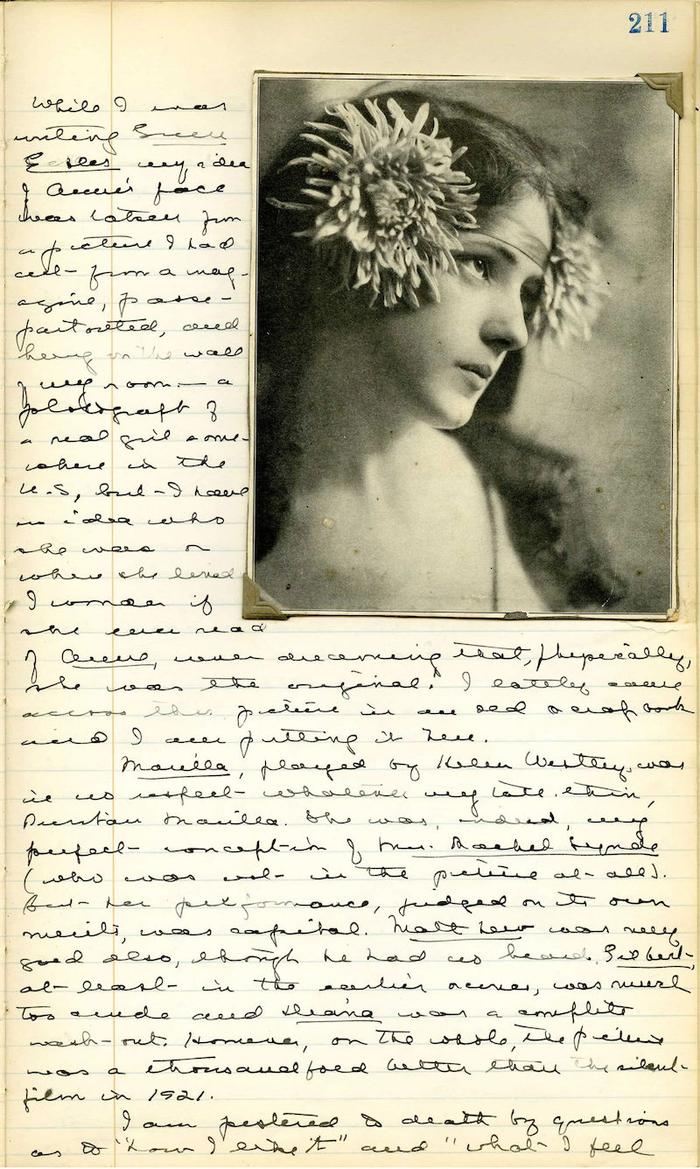 211
While I was
writing Green
Gables my idea
of Anne's face
was taken from
a picture I had
cut from a mag-
azine, passe-
partouted, and
hung on the wall
of my room — a
photograph of
a real girl some-
where in the
U.S, but I have
no idea who
she was or
where she lived
I wonder if
she ever read
of Anne, never dreaming that, physically,
she was the original! I lately came
across this picture in an old scrapbook
and I am putting it here.
Marilla, played by Helen Westley, was
in no respect whatever my tall, thin,
Puritan Marilla. She was, indeed, my
perfect conception of Mrs. Rachel Lynde
(who was not in the picture at all).
But her performance, judged on its own
merits, was capital. Matthew was very
good also, though he had no beard. Gilbert,
at least in the earlier scenes, was much
too crude and Diana was a complete
wash-out. However, on the whole, the picture
was a thousandfold better than the silent
film in 1921.
I am pestered to death by questions
as to "how I like it" and "what I feel